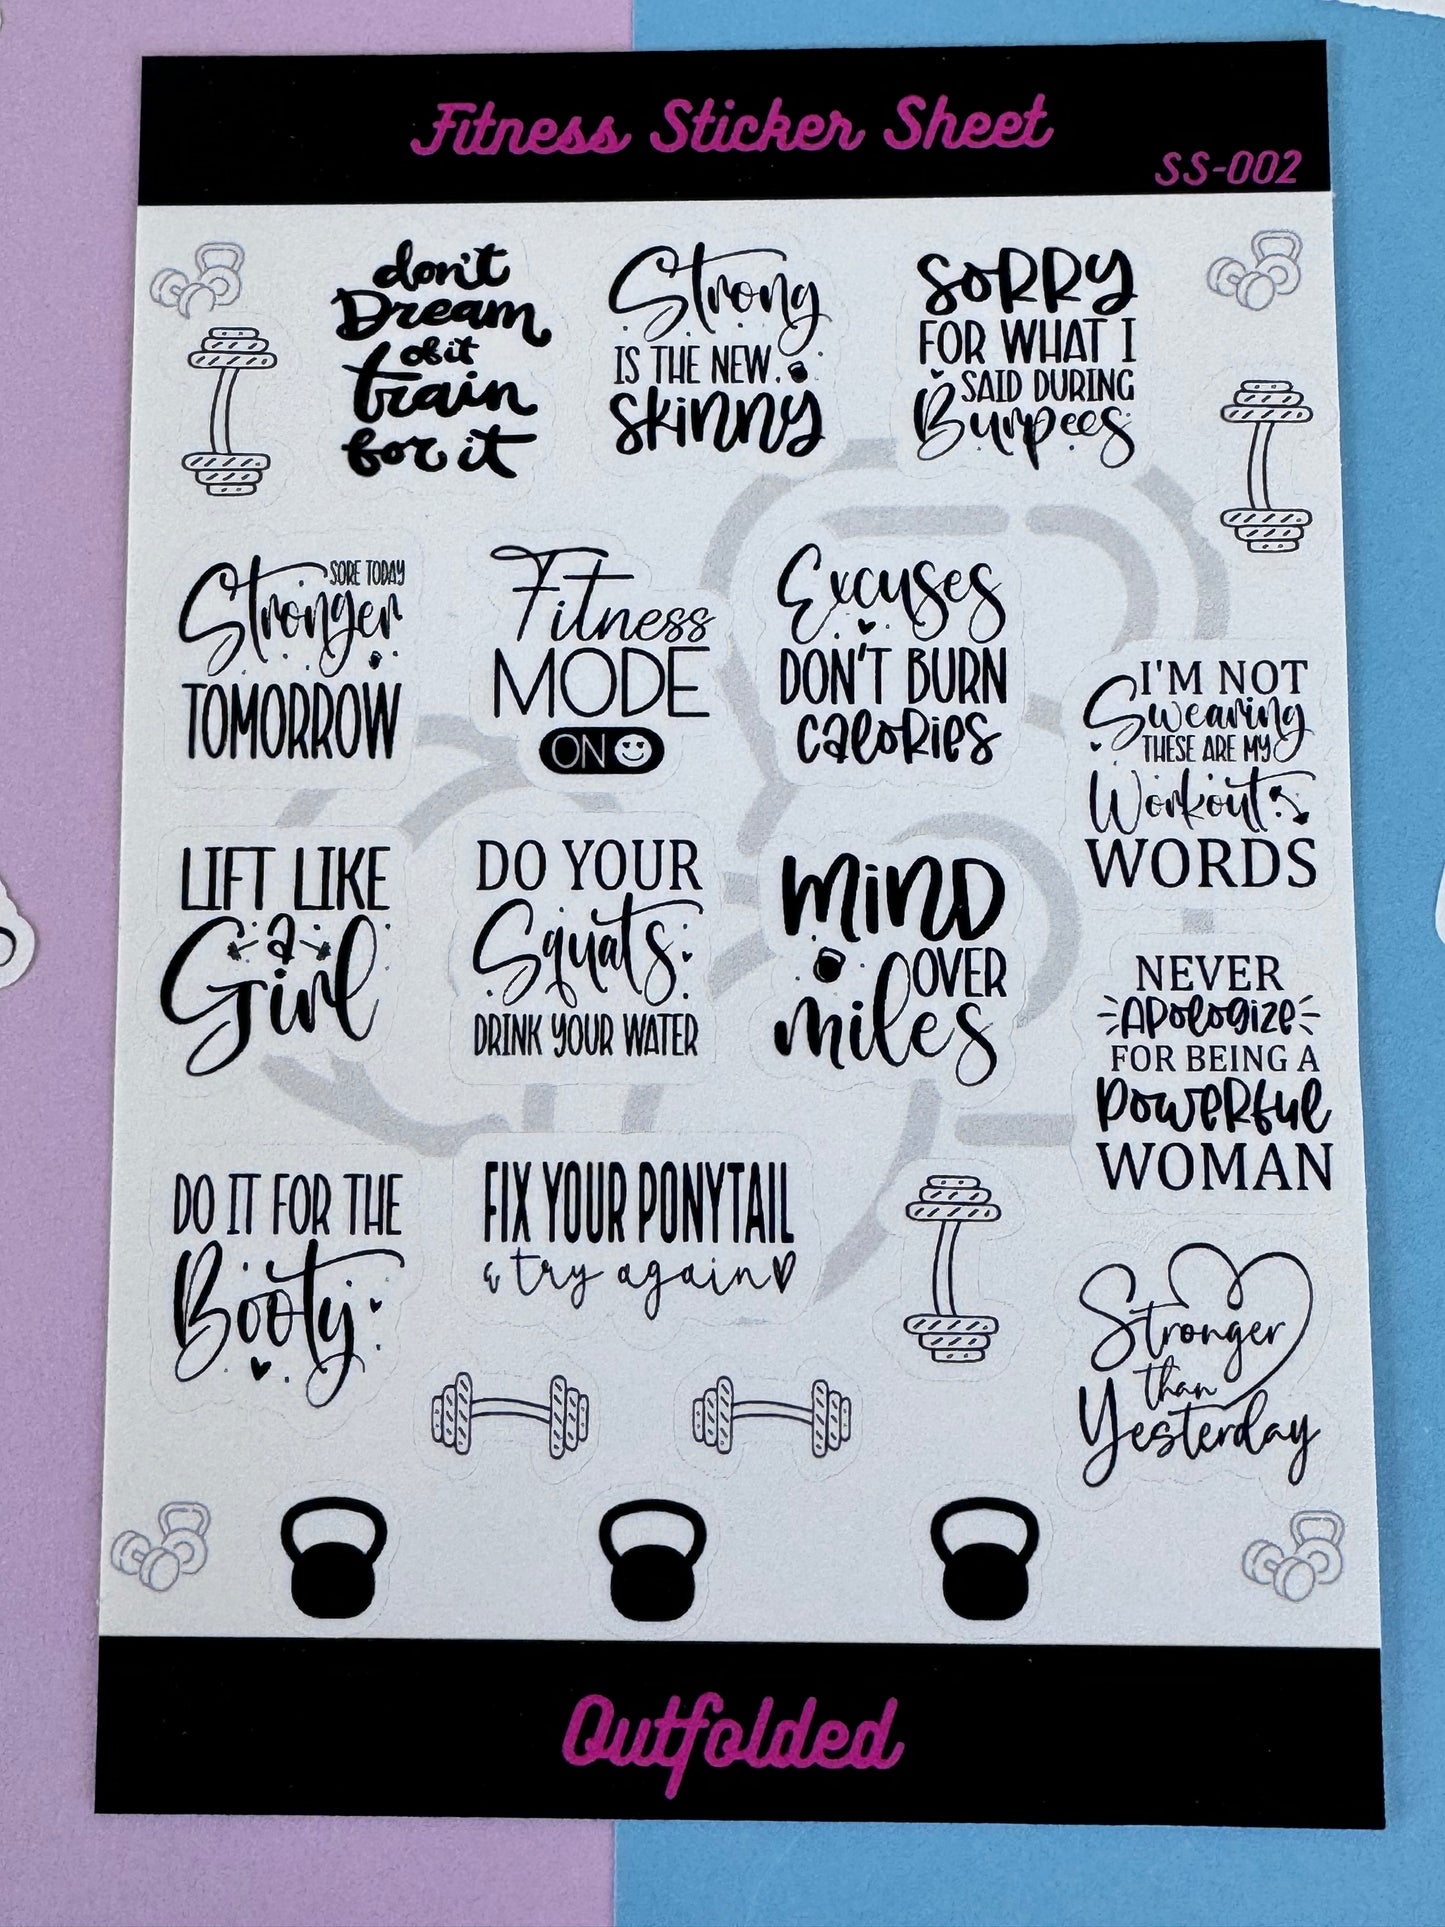 Fitness Sticker Sheet
SS-002
don't
Dream
of it
train
for it
Strong
IS THE NEW
skinny
SORRY
FOR WHAT I
SAID DURING
Burpees
SORE TODAY
Stronger
TOMORROW
Fitness
MODE
ON
Excuses
DON'T BURN
CALORIES
I'M NOT
Swearing
THESE ARE MY
Workout
WORDS
LIFT LIKE
a
Girl
DO YOUR
Squats
DRINK YOUR WATER
MIND
OVER
miles
NEVER
APOLOGIZE
FOR BEING A
POWERFUL
WOMAN
DO IT FOR THE
Booty
FIX YOUR PONYTAIL
& try again
Stronger
than
Yesterday
Outfolded